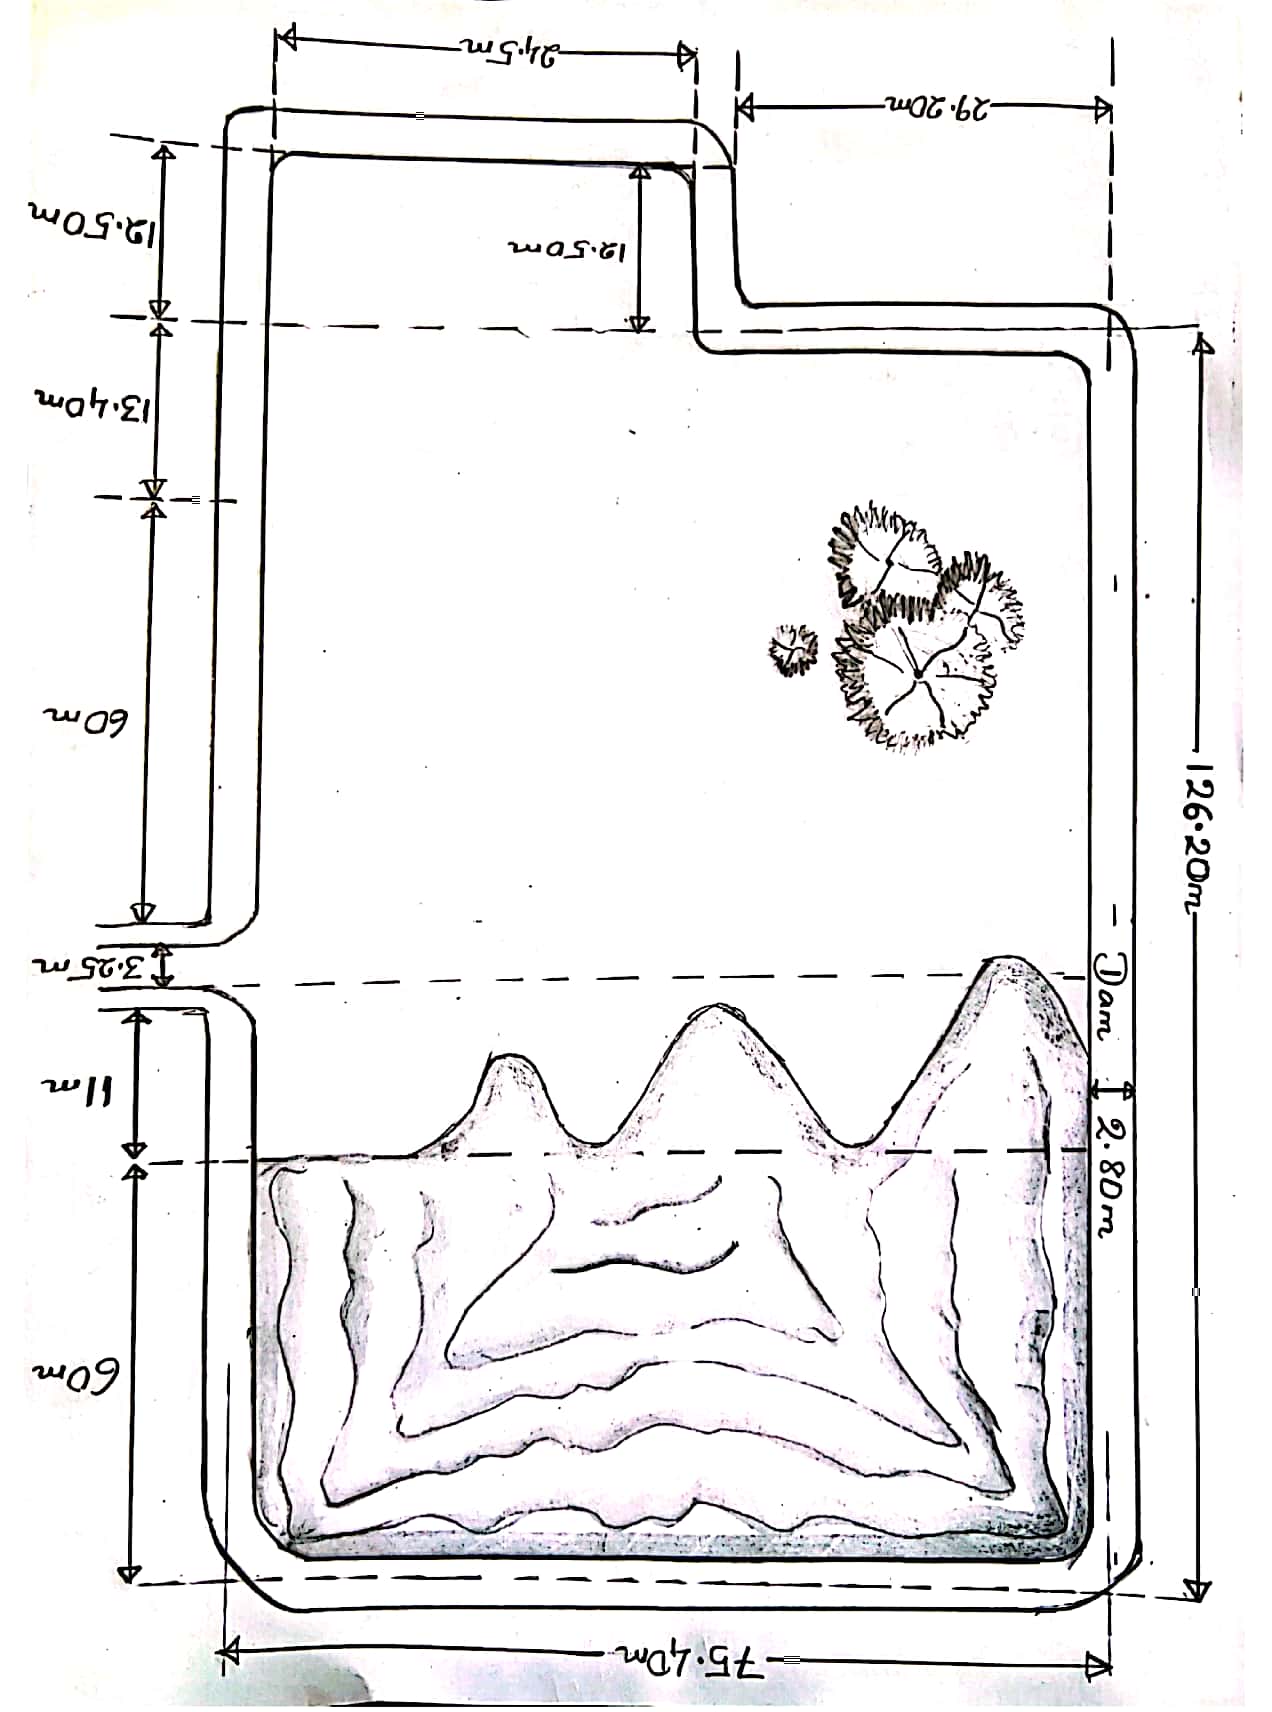 24.5m
29.20m
12.50m
12.50m
13.40m
60m
126.20m
3.25m
Dam
2.80m
11m
60m
75.40m